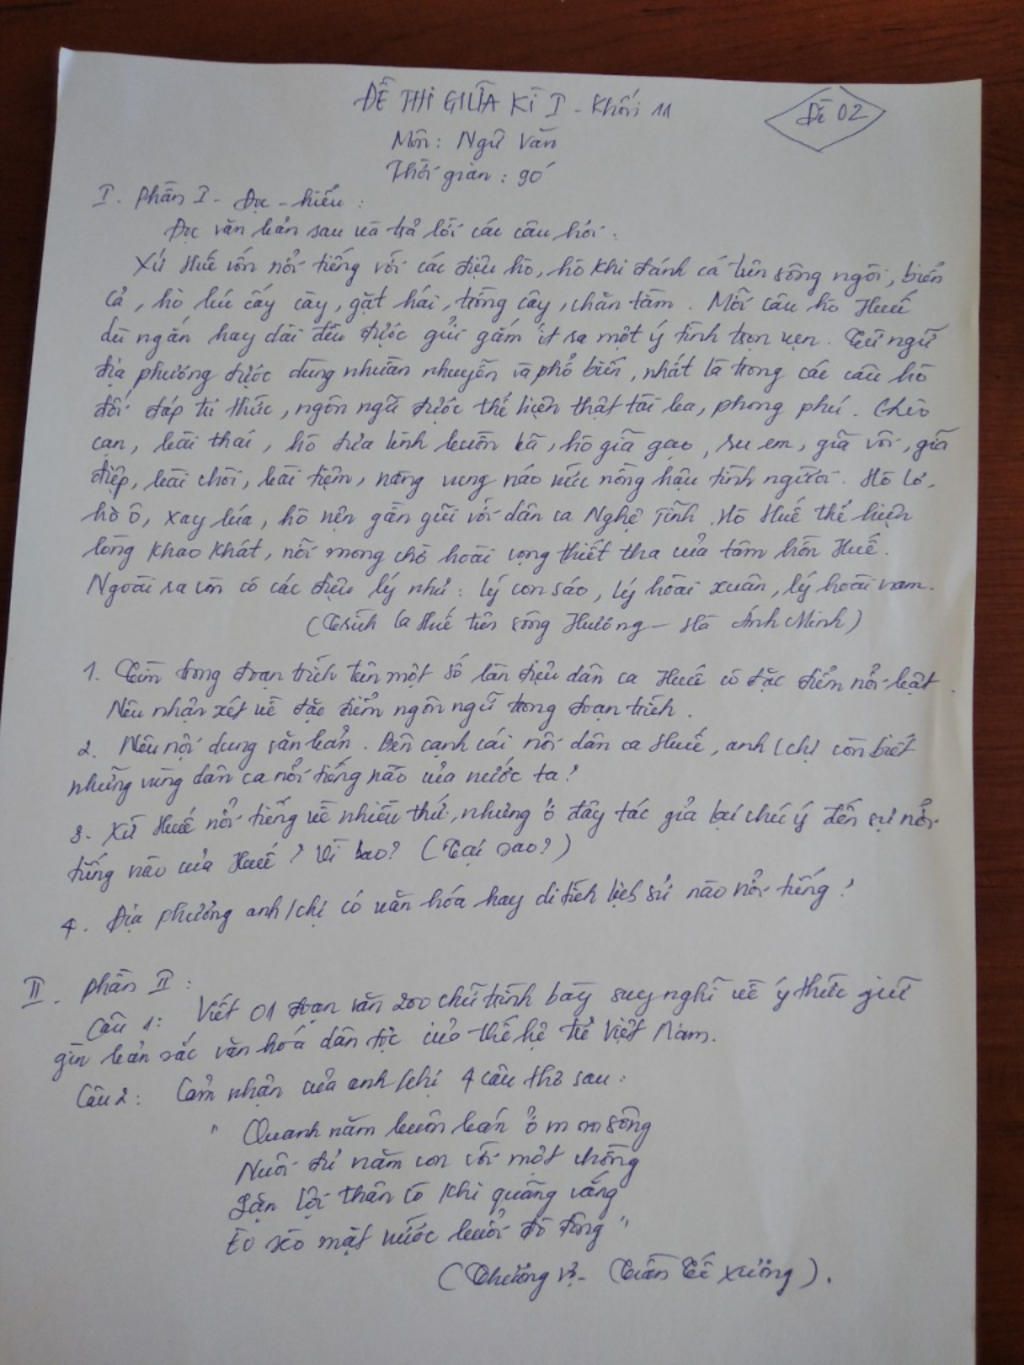 ĐỀ THI GIỮA KÌ I - Khối 11
Đề 02
Môn: Ngữ Văn
Thời gian: 90'
I. Phần I - Đọc - hiểu:
Đọc văn bản sau và trả lời các câu hỏi:
Xứ Huế vốn nổi tiếng với các điệu hò, hò khi đánh cá trên sông ngòi, biển
cả, hò lúc cấy cày, gặt hái, trồng cây, chăn tằm. Mỗi câu hò Huế
dù ngắn hay dài đều được gửi gắm ít ra một ý tình trọn vẹn. Từ ngữ
địa phương được dùng nhuần nhuyễn và phổ biến, nhất là trong các câu hò
đối đáp tri thức, ngôn ngữ được thể hiện thật tài ba, phong phú. Chèo
cạn, bài thai, hò đưa linh buồn bã, hò giã gạo, ru em, giã vôi, giã
điệp, bài chòi, bài tiệm, nàng vung náo nức nồng hậu tình người. Hò lơ,
hò ô, xay lúa, hò nện gần gũi với dân ca Nghệ Tĩnh. Hò Huế thể hiện
lòng khao khát, nỗi mong chờ hoài vọng thiết tha của tâm hồn Huế.
Ngoài ra còn có các điệu lý như: lý con sáo, lý hoài xuân, lý hoài nam.
(Trích Ca Huế trên sông Hương - Hà Ánh Minh)
1. Tìm trong đoạn trích tên một số làn điệu dân ca Huế có đặc điểm nổi bật.
Nêu nhận xét về đặc điểm ngôn ngữ trong đoạn trích.
2. Nêu nội dung văn bản. Bên cạnh cái nôi dân ca Huế, anh/chị còn biết
những vùng dân ca nổi tiếng nào của nước ta?
3. Xứ Huế nổi tiếng về nhiều thứ, nhưng ở đây tác giả lại chú ý đến sự nổi
tiếng nào của Huế? Vì sao? (Tại sao?)
4. Địa phương anh/chị có văn hóa hay di tích lịch sử nào nổi tiếng?
II. Phần II:
Câu 1: Viết 01 đoạn văn 200 chữ trình bày suy nghĩ về ý thức giữ
gìn bản sắc văn hoá dân tộc của thế hệ trẻ Việt Nam.
Câu 2: Cảm nhận của anh/chị 4 câu thơ sau:
" Quanh năm buôn bán ở mom sông
Nuôi đủ năm con với một chồng
Lặn lội thân cò khi quãng vắng
Eo sèo mặt nước buổi đò đông "
(Thương vợ - Trần Tế Xương).